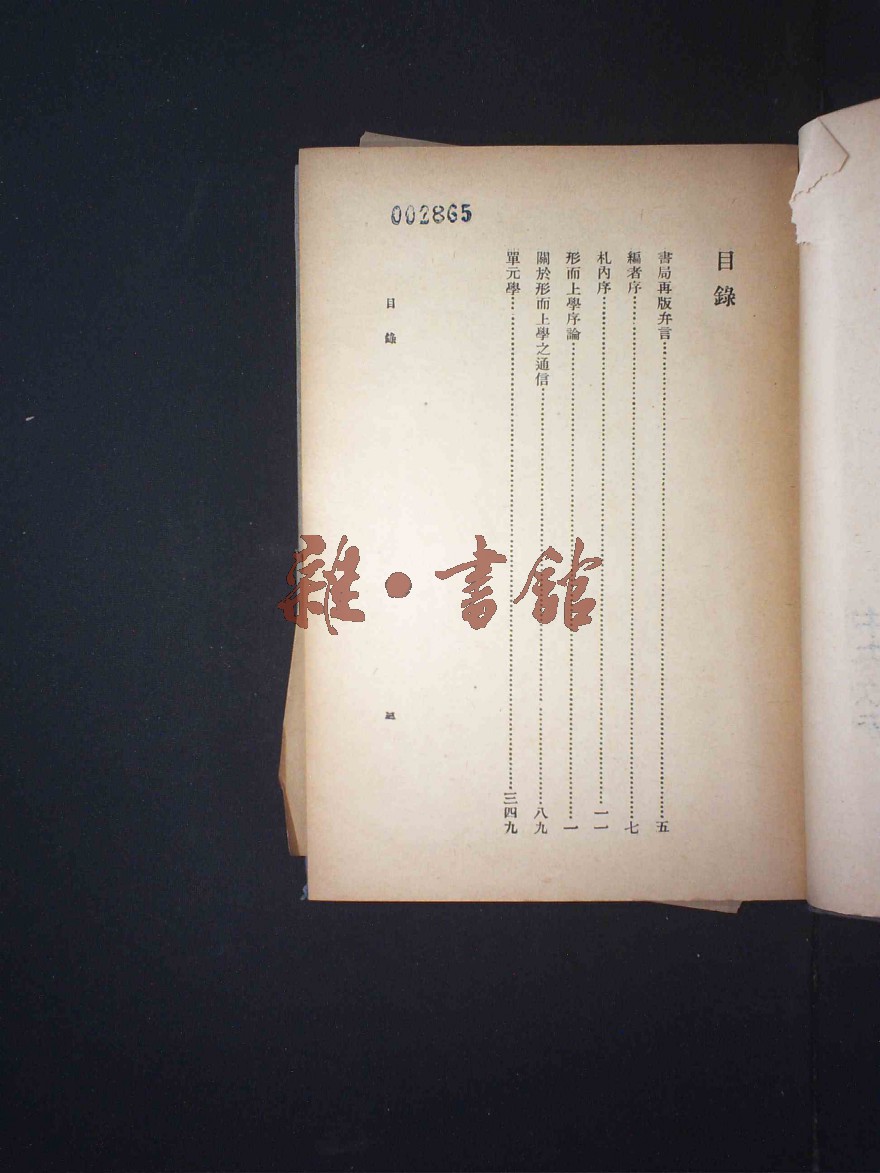 002865
目錄
書局再版弁言五
編者序七
札內序一一
形而上學序論一
關於形而上學之通信八九
單元學三四九
目錄
雜·書館